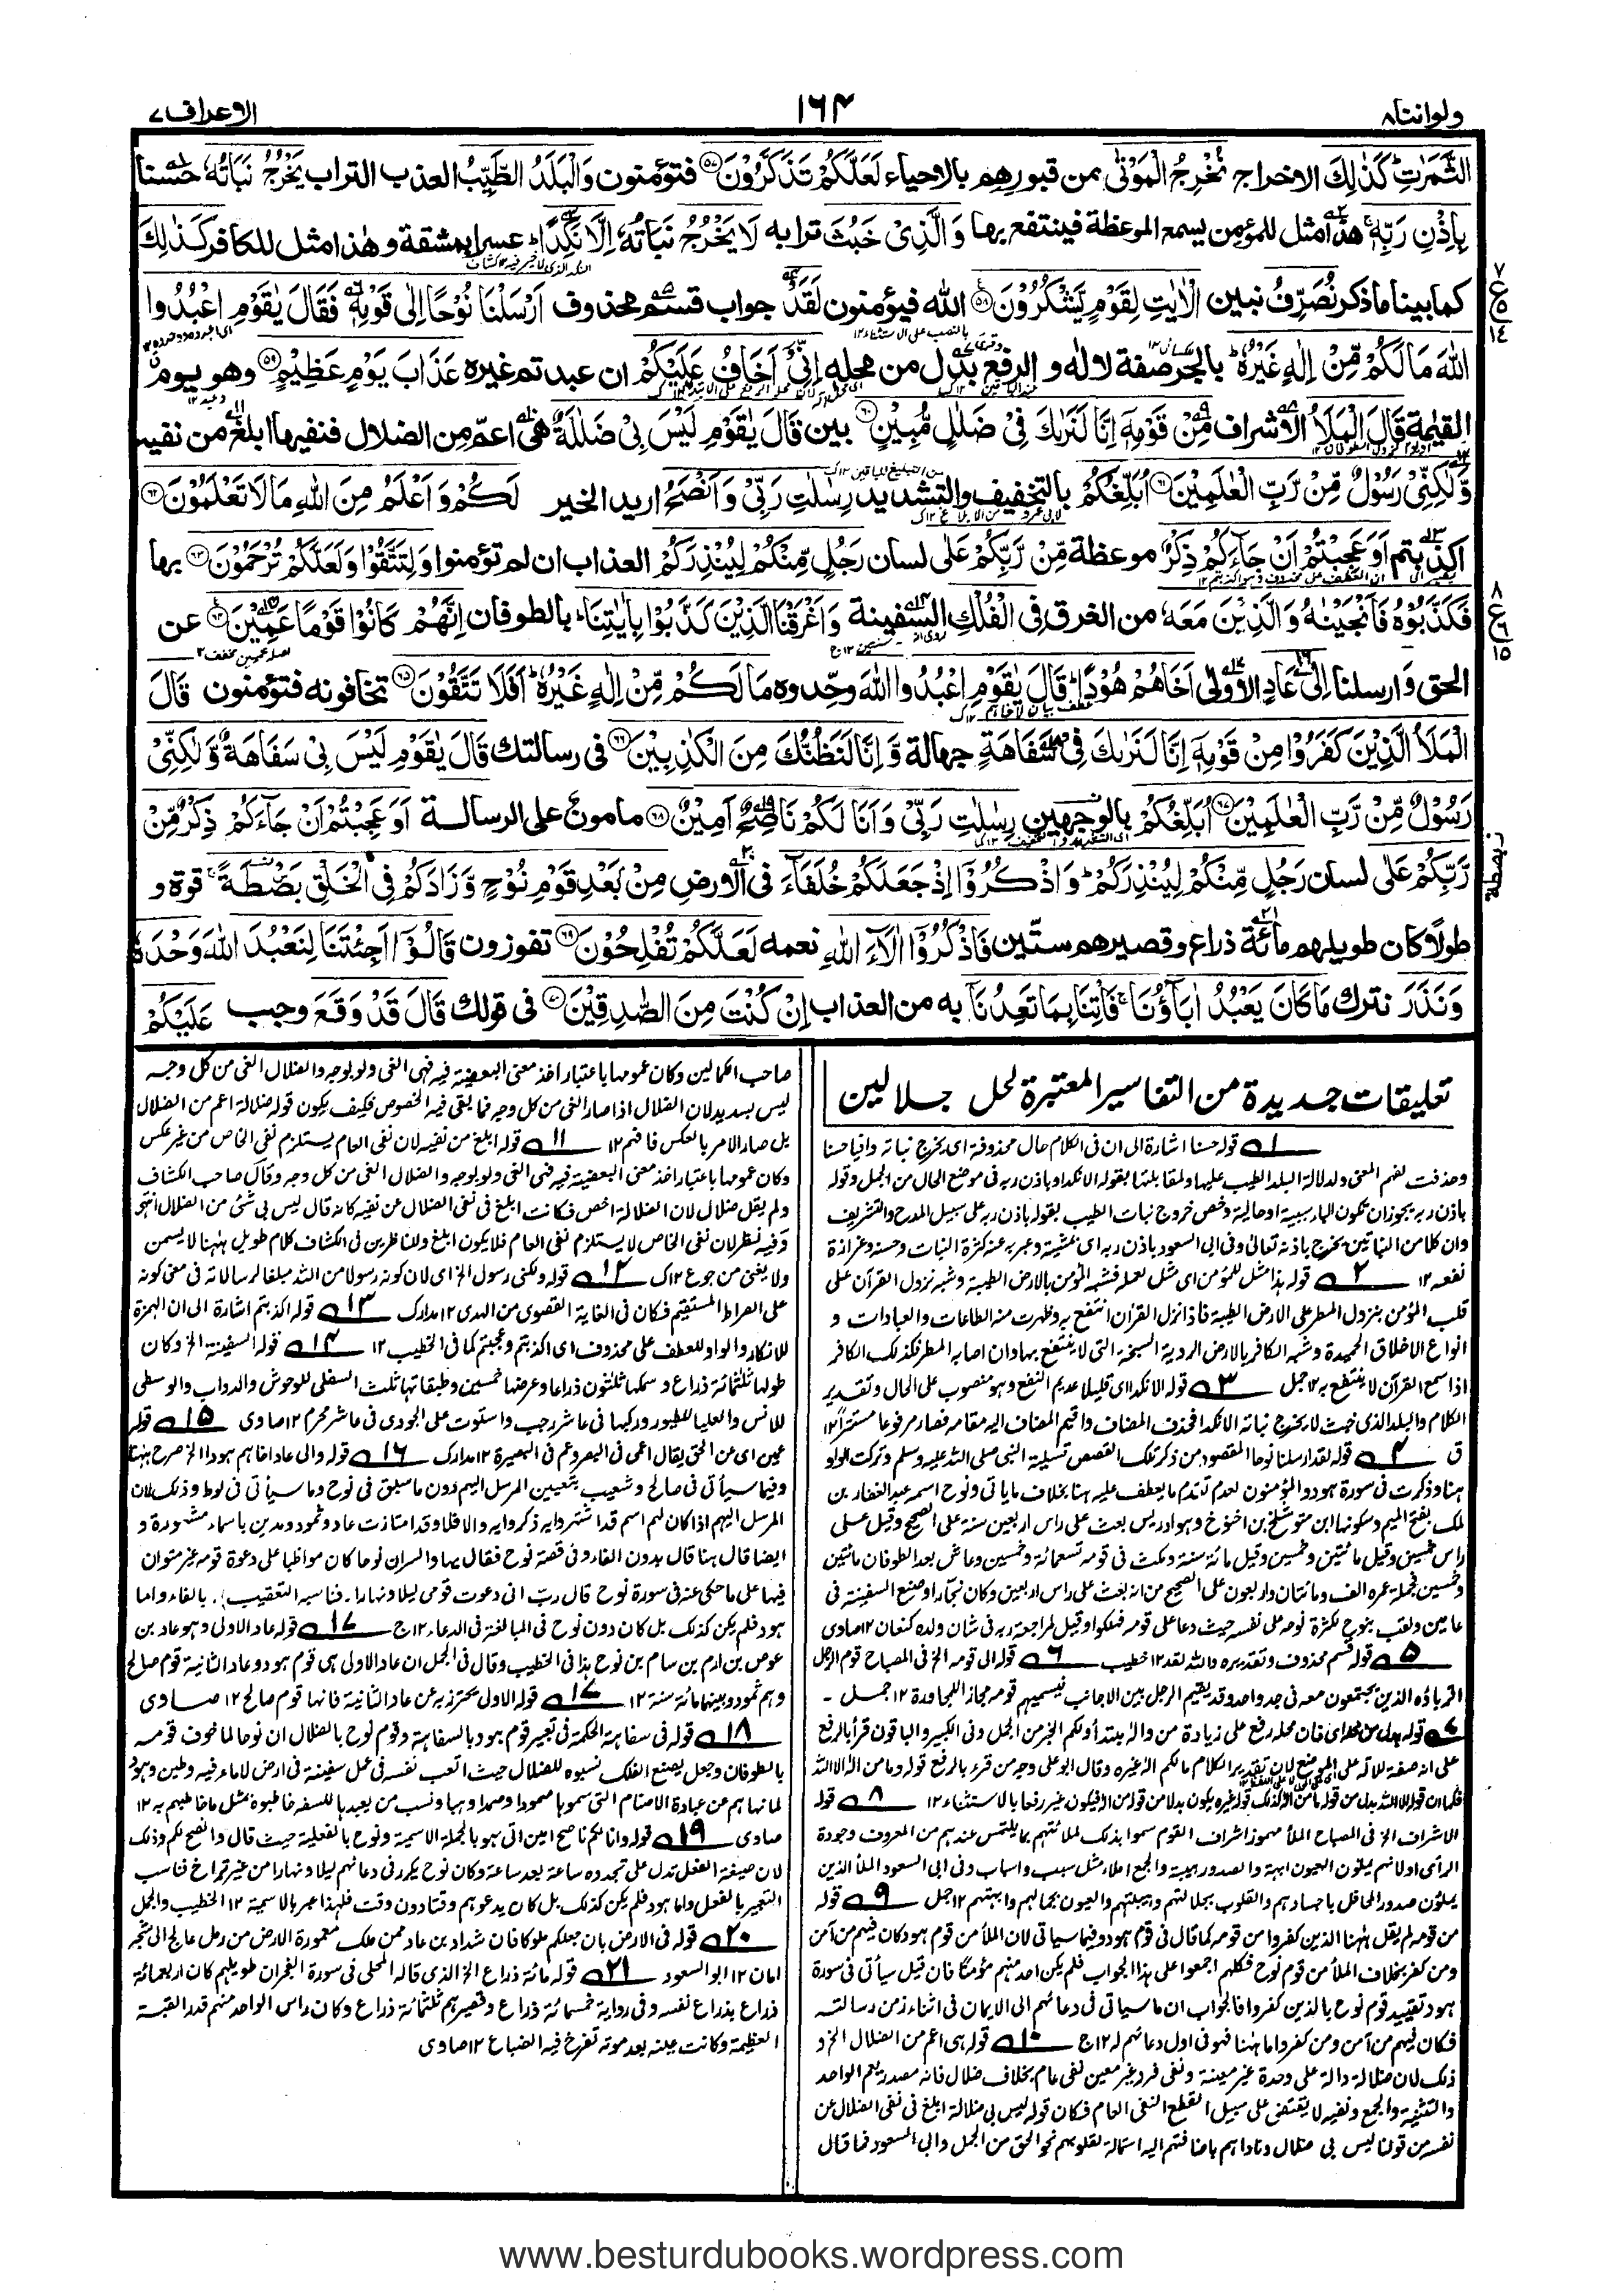 ولواننا٨
١٦٤
الاعراف٧
الثَّمَرٰتِ كَذٰلِكَ الاخراج نُخْرِجُ الْمَوْتٰى من قبورهم بالاحياء لَعَلَّكُمْ تَذَكَّرُوْنَ ﴿٥٧﴾ فتؤمنون وَالْبَلَدُ الطَّيِّبُ العذب التراب يَخْرُجُ نَبَاتُهٗ حسنا
بِاِذْنِ رَبِّهٖ هذا مثل للمؤمن يسمع الموعظة فينتفع بها وَالَّذِىْ خَبُثَ ترابه لَا يَخْرُجُ نباته اِلَّا نَكِدًا عسرا بمشقة وهذا مثل للكافر كَذٰلِكَ
كما بينا ما ذكر نُصَرِّفُ نبين الْاٰيٰتِ لِقَوْمٍ يَّشْكُرُوْنَ ﴿٥٨﴾ الله فيؤمنون لَقَدْ جواب قسم محذوف اَرْسَلْنَا نُوْحًا اِلٰى قَوْمِهٖ فَقَالَ يٰقَوْمِ اعْبُدُوا
اللهَ مَا لَكُمْ مِّنْ اِلٰهٍ غَيْرُهٗ بالجر صفة لاله و الرفع بدل من محله اِنِّىْ اَخَافُ عَلَيْكُمْ ان عبدتم غيره عَذَابَ يَوْمٍ عَظِيْمٍ ﴿٥٩﴾ وهو يوم
القيٰمة قَالَ الْمَلَاُ الاشراف مِنْ قَوْمِهٖ اِنَّا لَنَرٰىكَ فِىْ ضَلٰلٍ مُّبِيْنٍ ﴿٦٠﴾ بين قَالَ يٰقَوْمِ لَيْسَ بِىْ ضَلٰلَةٌ هى اعم من الضلال فنفيها ابلغ من نفيه
وَّلٰكِنِّىْ رَسُوْلٌ مِّنْ رَّبِّ الْعٰلَمِيْنَ ﴿٦١﴾ اُبَلِّغُكُمْ بالتخفيف والتشديد رِسٰلٰتِ رَبِّىْ وَاَنْصَحُ اريد الخير لَكُمْ وَاَعْلَمُ مِنَ اللهِ مَا لَا تَعْلَمُوْنَ ﴿٦٢﴾
اكذبتم اَوَعَجِبْتُمْ اَنْ جَآءَكُمْ ذِكْرٌ موعظة مِّنْ رَّبِّكُمْ عَلٰى لسان رَجُلٍ مِّنْكُمْ لِيُنْذِرَكُمْ العذاب ان لم تؤمنوا وَلِتَتَّقُوْا وَلَعَلَّكُمْ تُرْحَمُوْنَ ﴿٦٣﴾ بها
فَكَذَّبُوْهُ فَاَنْجَيْنٰهُ وَالَّذِيْنَ مَعَهٗ من الغرق فِى الْفُلْكِ السفينة وَاَغْرَقْنَا الَّذِيْنَ كَذَّبُوْا بِاٰيٰتِنَا بالطوفان اِنَّهُمْ كَانُوْا قَوْمًا عَمِيْنَ ﴿٦٤﴾ عن
الحق وَ ارسلنا اِلٰى عَادٍ الاولى اَخَاهُمْ هُوْدًا قَالَ يٰقَوْمِ اعْبُدُوا اللهَ وحدوه مَا لَكُمْ مِّنْ اِلٰهٍ غَيْرُهٗ اَفَلَا تَتَّقُوْنَ ﴿٦٥﴾ تخافونه فتؤمنون قَالَ
الْمَلَاُ الَّذِيْنَ كَفَرُوْا مِنْ قَوْمِهٖ اِنَّا لَنَرٰىكَ فِىْ سَفَاهَةٍ جهالة وَّاِنَّا لَنَظُنُّكَ مِنَ الْكٰذِبِيْنَ ﴿٦٦﴾ فى رسالتك قَالَ يٰقَوْمِ لَيْسَ بِىْ سَفَاهَةٌ وَّلٰكِنِّىْ
رَسُوْلٌ مِّنْ رَّبِّ الْعٰلَمِيْنَ ﴿٦٧﴾ اُبَلِّغُكُمْ بالوجهين رِسٰلٰتِ رَبِّىْ وَاَنَا لَكُمْ نَاصِحٌ اَمِيْنٌ ﴿٦٨﴾ مامون على الرسالة اَوَعَجِبْتُمْ اَنْ جَآءَكُمْ ذِكْرٌ مِّنْ
رَّبِّكُمْ عَلٰى لسان رَجُلٍ مِّنْكُمْ لِيُنْذِرَكُمْ وَاذْكُرُوْٓا اِذْ جَعَلَكُمْ خُلَفَآءَ فى الارض مِنْ بَعْدِ قَوْمِ نُوْحٍ وَّزَادَكُمْ فِى الْخَلْقِ بَصْۜطَةً قوة و
طولا كان طويلهم مائة ذراع وقصيرهم ستين فَاذْكُرُوْٓا اٰلَآءَ اللهِ نعمه لَعَلَّكُمْ تُفْلِحُوْنَ ﴿٦٩﴾ تفوزون قَالُوْٓا اَجِئْتَنَا لِنَعْبُدَ اللهَ وَحْدَهٗ
وَنَذَرَ نترك مَا كَانَ يَعْبُدُ اٰبَآؤُنَا فَاْتِنَا بِمَا تَعِدُنَا به من العذاب اِنْ كُنْتَ مِنَ الصّٰدِقِيْنَ ﴿٧٠﴾ فى قولك قَالَ قَدْ وَقَعَ وجب عَلَيْكُمْ
تعليقات جديدة من التفاسير المعتبرة لحل جلالين
١ قوله حسنا اشارة الى ان فى الكلام حال محذوفة اى يخرج نباته وافيا حسنا
وحذفت لفهم المعنى ولدلالة البلد الطيب عليها ولمقابلتها بقوله الا نكدا وباذن ربه فى موضع الحال من الجمل وقوله
باذن ربه يجوز ان تكون الباء سببية او حالية وخص خروج نبات الطيب بقوله باذن ربه على سبيل المدح والتشريف
وان كلا من النباتين يخرج باذنه تعالى وفى ابى السعود باذن ربه اى بمشيته وعبر به عن كثرة النبات وحسنه وغزارة
نفعه ١٢ ٢ قوله هذا مثل للمؤمن اى مثل لعمله فشبه المؤمن بالارض الطيبة وشبه نزول القرآن على
قلب المؤمن بنزول المطر على الارض الطيبة فاذا نزل القرآن انتفع به وظهرت منه الطاعات والعبادات و
انواع الاخلاق الحميدة وشبه الكافر بالارض الردية السبخة التى لا ينتفع بها وان اصابه المطر فكذلك الكافر
اذا سمع القرآن لا ينتفع به ١٢ جمل ٣ قوله الا نكدا اى قليلا عديم النفع وهو منصوب على الحال وتقدير
الكلام والبلد الذى خبث لا يخرج نباته الا نكدا فحذف المضاف واقيم المضاف اليه مقامه فصار مرفوعا مستترا ١٢
ق ٤ قوله لقد ارسلنا نوحا المقصود من ذكر تلك القصص تسلية النبى صلى الله عليه وسلم وتركت الواو
هنا وذكرت فى سورة هود والمؤمنون لعدم تقدم ما يعطف عليه هنا بخلاف ما ياتى ونوح اسمه عبد الغفار بن
لمك بفتح الميم وسكونها ابن متوشلخ بن اخنوخ وهو ادريس بعث على راس اربعين سنة على الصحيح وقيل على
راس خمسين وقيل مائتين وخمسين وقيل مائة سنة ومكث فى قومه تسعمائة وخمسين وعاش بعد الطوفان مائتين
وخمسين فجملة عمره الف ومائتان واربعون على الصحيح من انه بعث على راس اربعين وكان نجارا وصنع السفينة فى
عامين ولقب بنوح لكثرة نوحه على نفسه حيث دعا على قومه فهلكوا وقيل لمراجعة ربه فى شان ولده كنعان ١٢ صاوى
٥ قوله قسم محذوف وتقديره والله لقد ١٢ خطيب ٦ قوله الى قومه الخ فى المصباح قوم الرجل
اقرباؤه الذين يجتمعون معه فى جد واحد وقد يقيم الرجل بين الاجانب فيسميهم قومه مجازا للمجاورة ١٢ جمل -
٧ قوله بدل من محله اى فان محله رفع على زيادة من واله مبتدأ ولكم الخبر من الجمل وفى الكبير والباقون قرأ بالرفع
على انه صفة للاله على الموضع لان تقدير الكلام ما لكم اله غيره وقال ابو على وجه من قرء بالرفع قوله وما من اله الا الله
٨ قوله
الاشراف الخ فى المصباح الملأ مهموز اشراف القوم سموا بذلك لملائتهم بما يلتمس عندهم من المعروف وجودة
الرأى او لانهم يملئون العيون ابهة والصدور هيبة والجمع املاء مثل سبب واسباب وفى ابى السعود الملأ الذين
يملؤن صدور المحافل باجسادهم والقلوب بجلالتهم وهيبتهم والعيون بجمالهم وابهتهم ١٢ جمل ٩ قوله
من قومه لم يقل ههنا الذين كفروا من قومه كما قال فى قوم هود وفيما سياتى لان الملأ من قوم هود كان فيهم من آمن
ومن كفر بخلاف الملأ من قوم نوح فكلهم اجمعوا على هذا الجواب فلم يكن احد منهم مؤمنا فان قيل سيأتى فى سورة
هود تقييد قوم نوح بالذين كفروا فالجواب ان ما سياتى فى دعائهم الى الايمان فى اثناء زمن رسالته
فكان فيهم من آمن ومن كفر واما ههنا فهو فى اول دعائهم له ١٢ ج ١٠ قوله هى اعم من الضلال الخ و
ذلك لان ضلالة دالة على وحدة غير معينة ونفى فرد غير معين نفى عام بخلاف ضلال فانه مصدر يعم الواحد
والتثنية والجمع ونفيه لا يقتضى على سبيل القطع النفى العام فكان قوله ليس بى ضلالة ابلغ فى نفى الضلال عن
نفسه من قولنا ليس بى ضلال وناداهم باضافتهم اليه استمالة لقلوبهم نحو الحق من الجمل وابى السعود فما قال
صاحب الكمالين وكان عمومها باعتبار اخذ معنى البعضية فيه فهى الغى ولو بوجه والضلال الغى من كل وجه
ليس بسديد لان الضلال اذا صار الغى من كل وجه فما بقى فيه الخصوص فكيف يكون قوله ضلالة اعم من الضلال
بل صار الامر بالعكس فافهم ١٢ ١١ قوله ابلغ من نفيه لان نفى العام يستلزم نفى الخاص من غير عكس
وكان عمومها باعتبار اخذ معنى البعضية فيه فهى الغى ولو بوجه والضلال الغى من كل وجه وقال صاحب الكشاف
ولم يقل ضلال لان الضلالة اخص فكانت ابلغ فى نفى الضلال عن نفسه كانه قال ليس بى شئ من الضلال انتهى
وفيه نظر لان نفى الخاص لا يستلزم نفى العام فلا يكون ابلغ وللناظرين فى الكشاف كلام طويل ههنا لا يسمن
ولا يغنى من جوع ١٢ ك ١٢ قوله ولكنى رسول الخ اى لان كونه رسولا من الله مبلغا لرسالاته فى معنى كونه
على الصراط المستقيم فكان فى الغاية القصوى من الهدى ١٢ مدارك ١٣ قوله اكذبتم اشارة الى ان الهمزة
للانكار والواو للعطف على محذوف اى اكذبتم وعجبتم كما فى الخطيب ١٢ ١٤ قوله السفينة الخ وكان
طولها ثلثمائة ذراع و سمكها ثلثون ذراعا وعرضها خمسين وطبقاتها ثلث السفلى للوحوش والدواب والوسطى
للانس والعليا للطيور وركبها فى عاشر رجب واستوت على الجودى فى عاشر محرم ١٢ صاوى ١٥ قوله
عمين اى عن الحق يقال اعمى فى البصر وعم فى البصيرة ١٢ مدارك ١٦ قوله والى عاد اخاهم هودا الخ صرح ههنا
وفيما سيأتى فى صالح و شعيب بتعيين المرسل اليهم دون ما سبق فى نوح وما سيأتى فى لوط وذلك لان
المرسل اليهم اذا كان لهم اسم قد اشتهروا به ذكروا به والا فلا وقد امتازت عاد وثمود ومدين باسماء مشهورة و
ايضا قال هنا قال بدون الفاء وفى قصة نوح فقال بها والسر ان نوحا كان مواظبا على دعوة قومه غير متوان
فيها على ما حكى عنه فى سورة نوح قال رب انى دعوت قومى ليلا ونهارا. فناسبه التعقيب بالفاء واما
هود فلم يكن كذلك بل كان دون نوح فى المبالغة فى الدعاء ١٢ ج ١٧ قوله عاد الاولى وهو عاد بن
عوص بن ارم بن سام بن نوح هذا فى الخطيب وقال فى الجمل ان عاد الاولى هى قوم هود وعاد الثانية قوم صالح
وهم ثمود وبينهما مائة سنة ١٢ ١٧ قوله الاولى يحترز به عن عاد الثانية فانها قوم صالح ١٢ صاوى
١٨ قوله فى سفاهة الحكمة فى تعبير قوم هود بالسفاهة وقوم نوح بالضلال ان نوحا لما خوف قومه
بالطوفان وجعل يصنع الفلك نسبوه للضلال حيث اتعب نفسه فى عمل سفينة فى ارض لا ماء فيه وطين وهود
لما نهاهم عن عبادة الاصنام التى سموها صمودا وصمدا وهبا ونسب من يعبدها للسفه خاطبوه بمثل ما خاطبهم به ١٢
صاوى ١٩ قوله وانا لكم ناصح امين اتى هو بالجملة الاسمية ونوح بالفعلية حيث قال وانصح لكم وذلك
لان صيغة الفعل تدل على تجدده ساعة بعد ساعة وكان نوح يكرر فى دعائهم ليلا ونهارا من غير تراخ فناسب
التعبير بالفعل واما هود فلم يكن كذلك بل كان يدعوهم وقتا دون وقت فلهذا عبر بالاسمية ١٢ الخطيب والجمل
٢٠ قوله فى الارض بان جعلكم ملوكا فان شداد بن عاد ممن ملك معمورة الارض من رمل عالج الى شجر
امان ١٢ ابو السعود ٢١ قوله مائة ذراع الخ الذى قاله المحلى فى سورة الفجر ان طويلهم كان اربعمائة
ذراع بذراع نفسه وفى رواية خمسمائة ذراع وقصيرهم ثلثمائة ذراع وكان راس الواحد منهم قدر القبة
العظيمة وكانت عينه بعد موته تفرخ فيه الضباع ١٢ صاوى
www.besturdubooks.wordpress.com